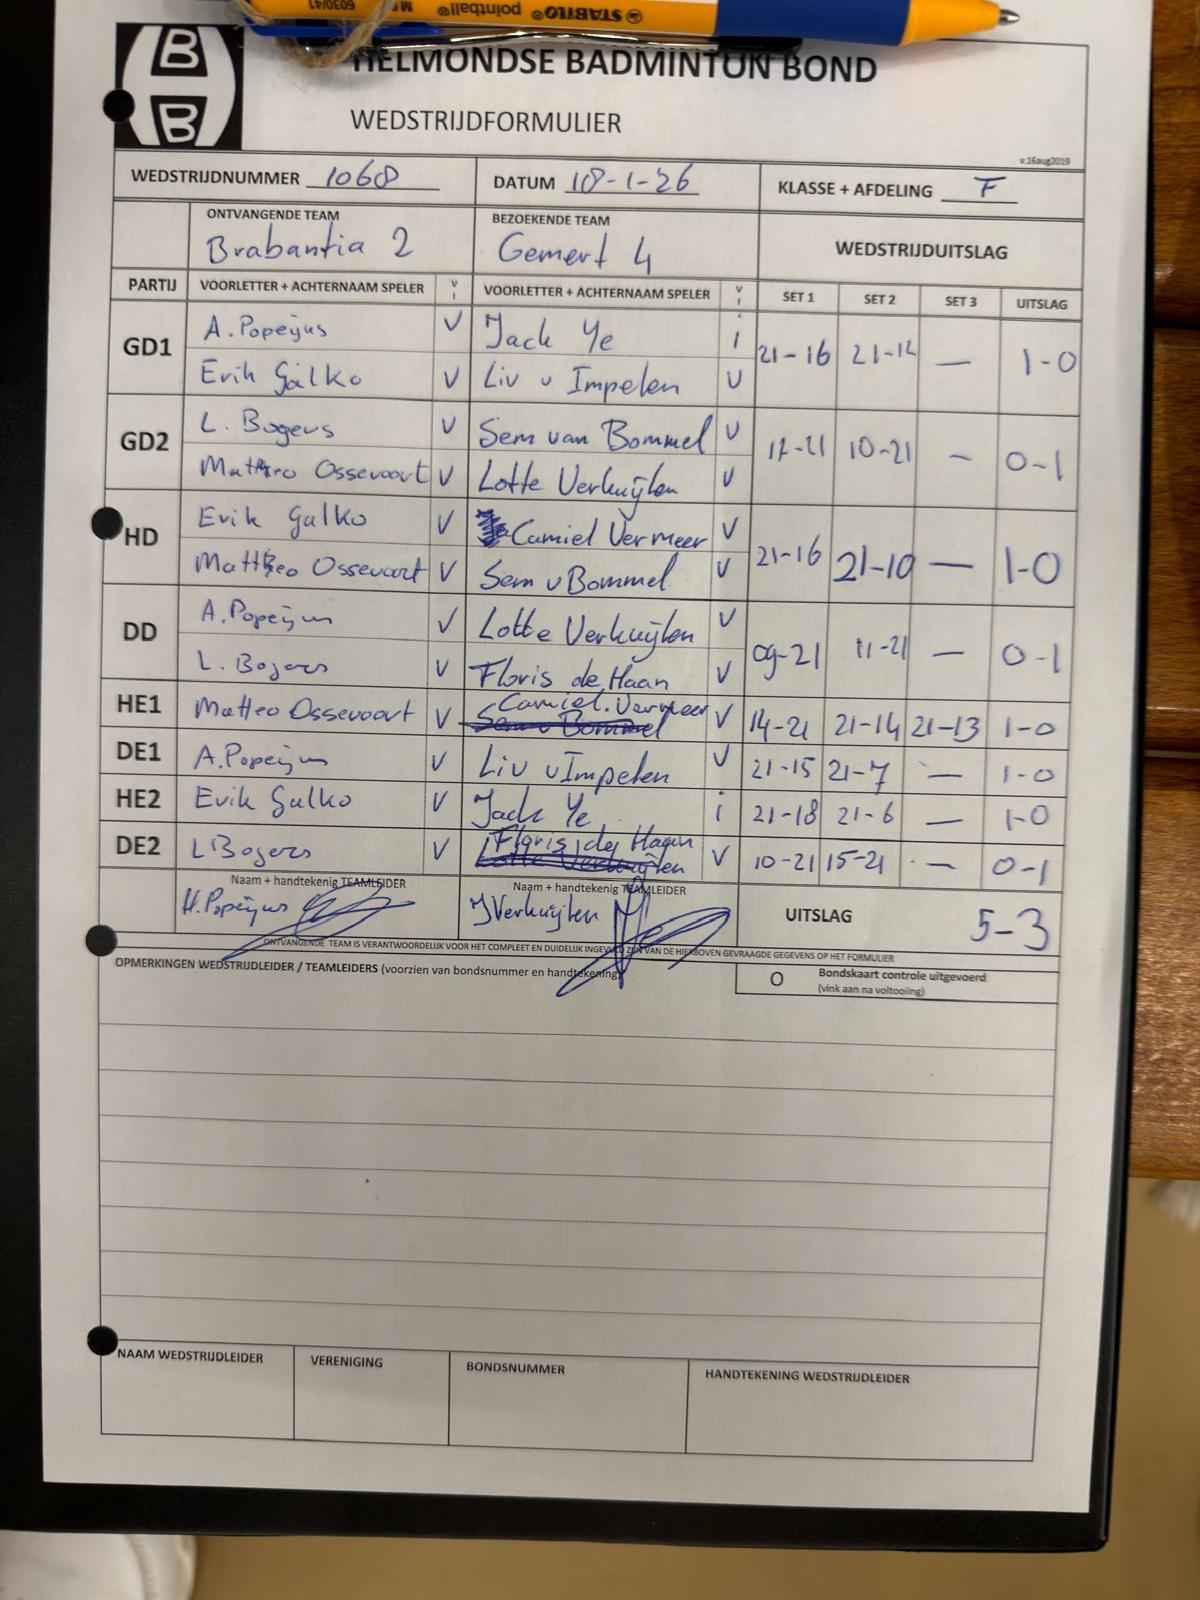 STABILO® pointball® 6030/41
HELMONDSE BADMINTON BOND
WEDSTRIJDFORMULIER
v.16aug2019
WEDSTRIJDNUMMER 1068 DATUM 18-1-26 KLASSE + AFDELING F
ONTVANGENDE TEAM BEZOEKENDE TEAM WEDSTRIJDUITSLAG
Brabantia 2 Gemert 4
PARTIJ VOORLETTER + ACHTERNAAM SPELER V I VOORLETTER + ACHTERNAAM SPELER V I SET 1 SET 2 SET 3 UITSLAG
GD1 A. Popeijus V Jack Ye i 21-16 — 1-0
Erik Galko V Liv v Impelen V
GD2 L. Bogers V Sem van Bommel V 17-21 10-21 - 0-1
Mattheo Ossevoort V Lotte Verkuijlen V
HD Erik Galko V Camiel Vermeer V 21-16 21-10 — 1-0
Mattheo Ossevoort V Sem v Bommel V
DD A. Popeijus V Lotte Verkuijlen V 09-21 11-21 — 0-1
L. Bogers V Floris de Haan V
HE1 Matteo Ossevoort V Camiel. Vermeer V 14-21 21-14 21-13 1-0
DE1 A. Popeijus V Liv v Impelen V 21-15 21-7 — 1-0
HE2 Erik Galko V Jack Ye i 21-18 21-6 — 1-0
DE2 L Bogers V Floris de Haan V 10-21 15-21 — 0-1
Naam + handtekenig TEAMLEIDER Naam + handtekenig TEAMLEIDER UITSLAG 5-3
H. Popeijus J Verkuijlen
ONTVANGENDE TEAM IS VERANTWOORDELIJK VOOR HET COMPLEET EN DUIDELIJK INGEVULD ZIJN VAN DE HIERBOVEN GEVRAAGDE GEGEVENS OP HET FORMULIER
OPMERKINGEN WEDSTRIJDLEIDER / TEAMLEIDERS (voorzien van bondsnummer en handtekening)
O Bondskaart controle uitgevoerd
(vink aan na voltooiing)
NAAM WEDSTRIJDLEIDER VERENIGING BONDSNUMMER HANDTEKENING WEDSTRIJDLEIDER